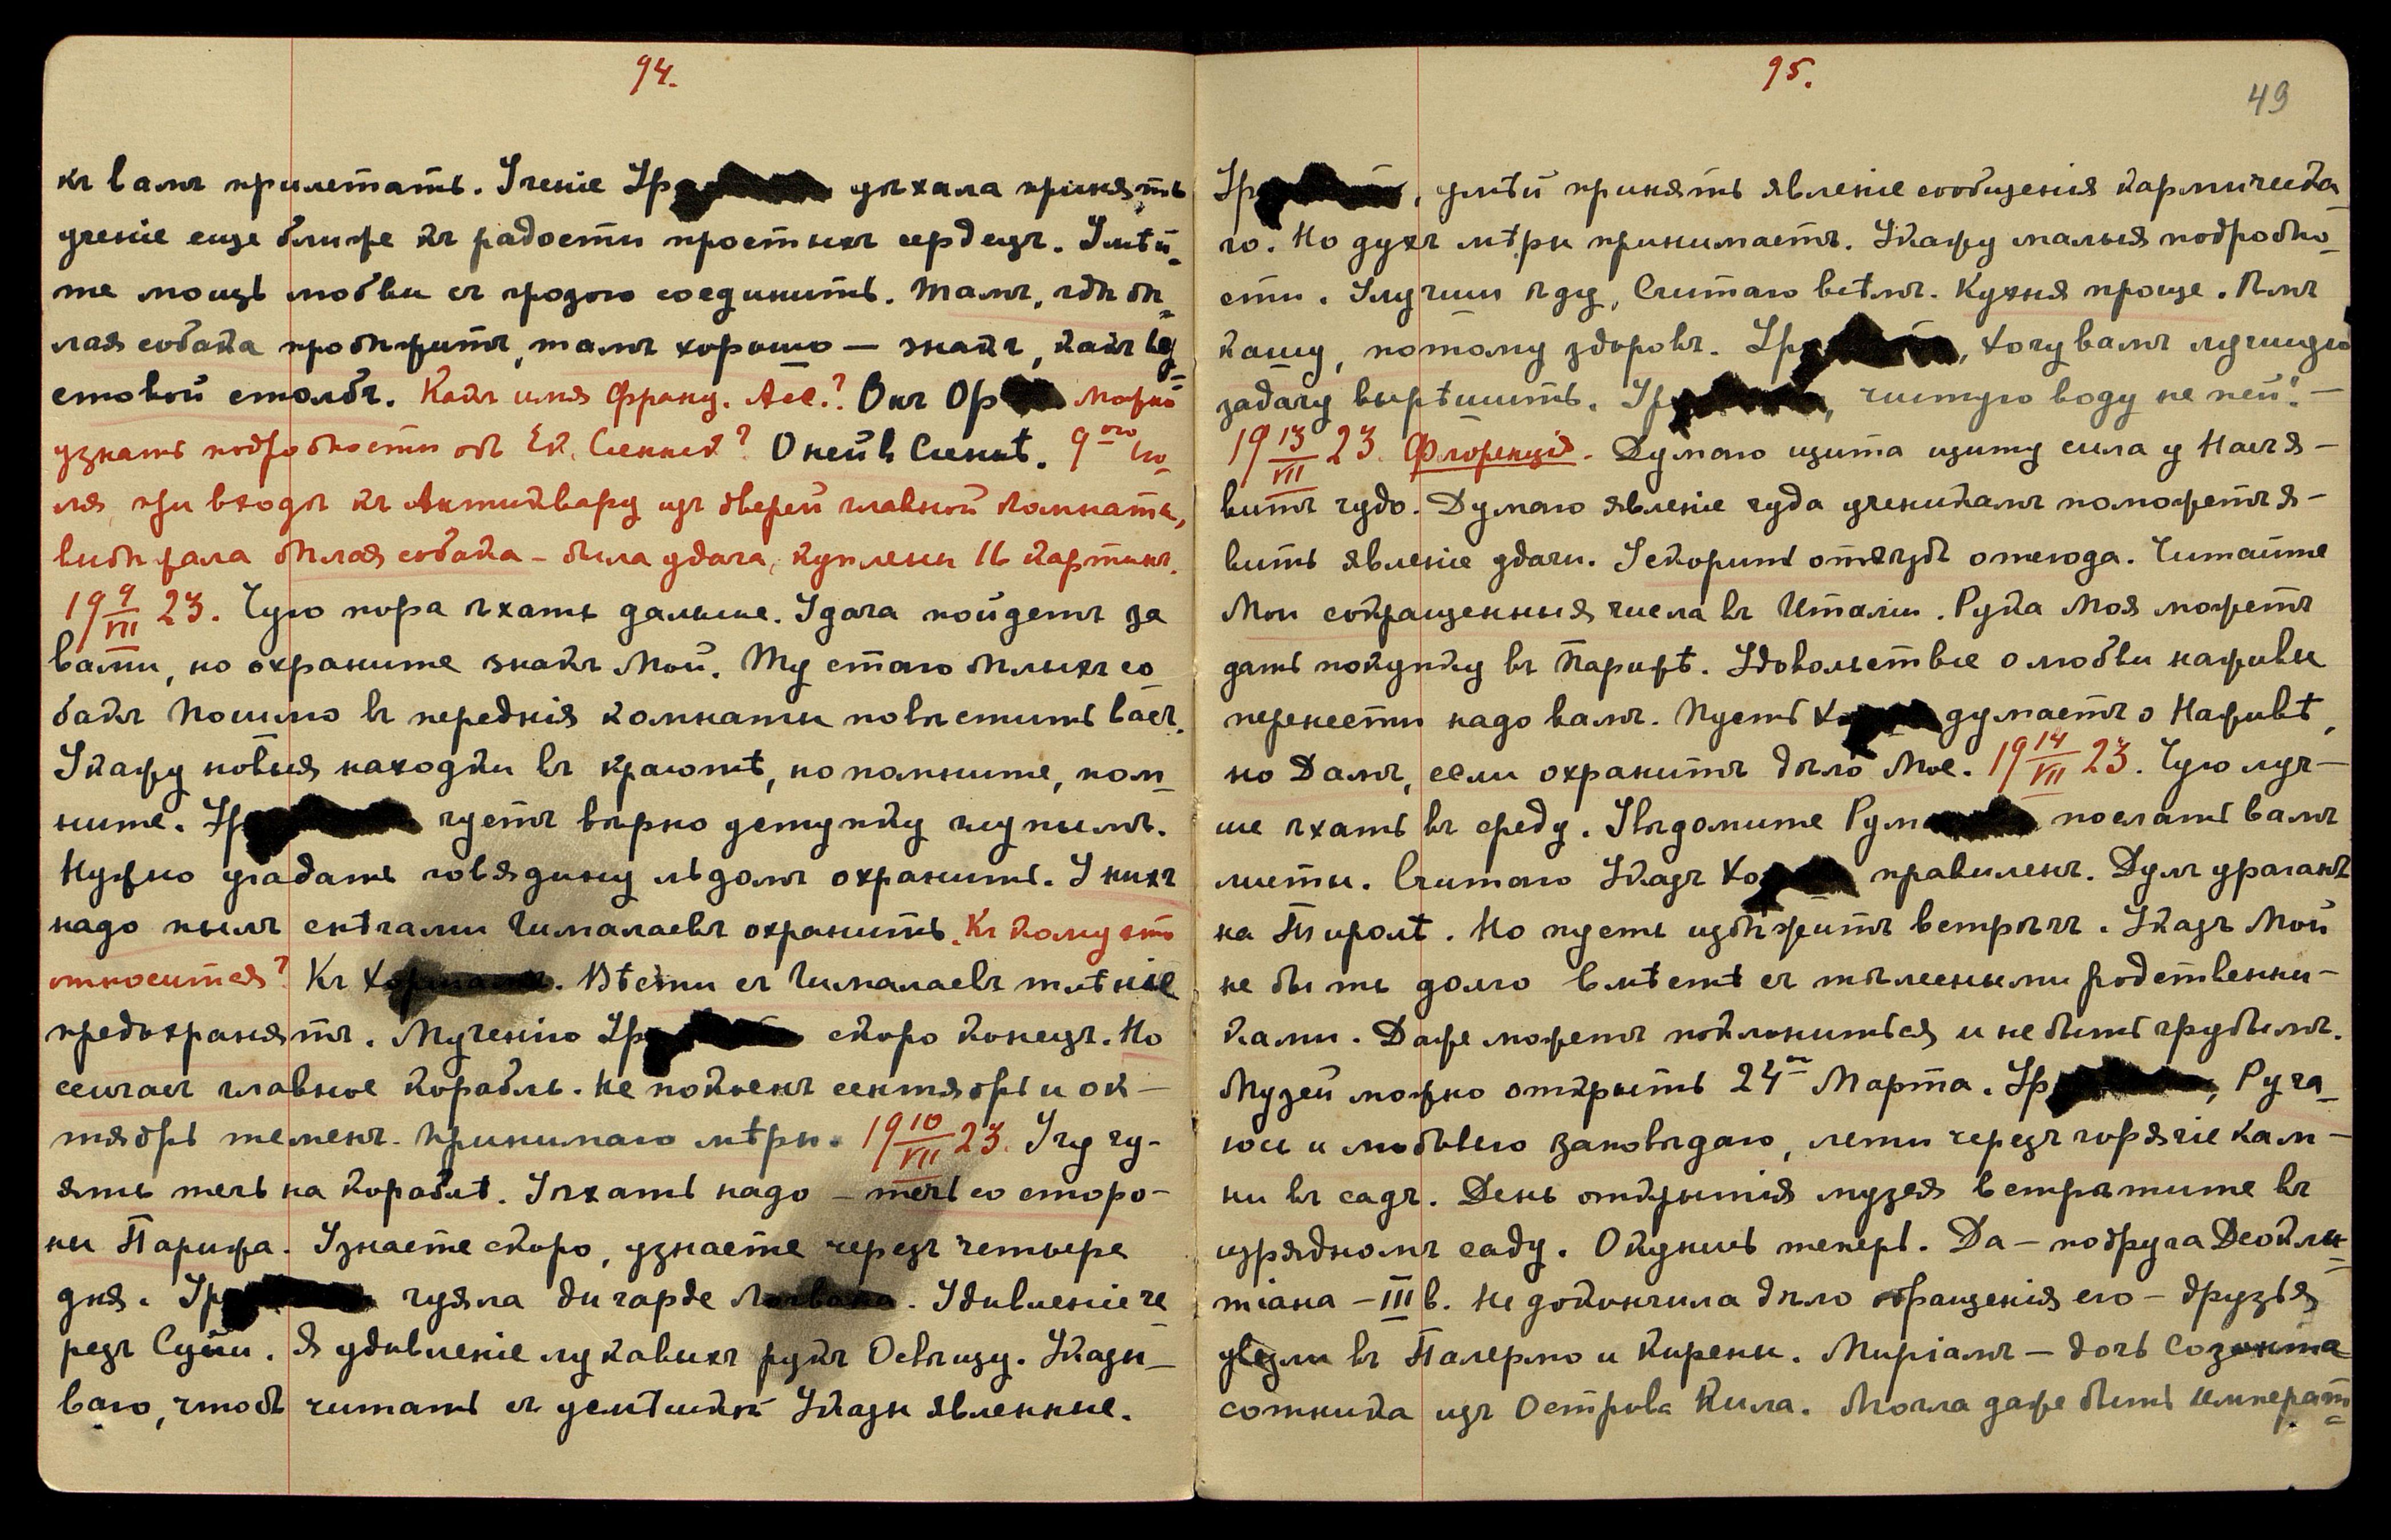 94.
къ вамъ прилетать. Ученіе Ур уѣхала принять
ученіе еще ближе къ радости простыхъ сердецъ. Умѣй-
те мощь любви съ грозою соединить. Тамъ, гдѣ бѣ-
лая собака пробѣжитъ, тамъ хорошо — знакъ, какъ
стовой столбъ. Какъ имя Франц. Асс.? Онъ Ор Можно
узнать подробности объ Ек. Сіенской? О ней въ Сіенѣ. 9ого Iю-
ля, при входѣ къ Антиквару изъ дверей главной комнаты,
выбѣжала бѣлая собака – была удача, куплены 16 картинъ.
19 9/VII 23. Чую пора ѣхать дальше. Удача пойдетъ за
вами, но охраните знакъ Мой. Ту стаю бѣлыхъ со-
бакъ Пошлю въ переднія комнаты повѣстить васъ.
Укажу новыя находки въ краютѣ, но помните, пом-
ните. Ур чуетъ вѣрно уступку глупымъ.
Нужно угадать говядину льдомъ охранить. У нихъ
надо пылъ снѣгами Гималаевъ охранить. Къ кому это
относится? Къ Хоршамъ. Вѣсти съ Гималаевъ тлѣніе
предохранятъ. Мученію Ур скоро конецъ. Но
сейчасъ главное корабль. Не покоенъ сентябрь и ок-
тябрь теменъ. Принимаю мѣры. 19 10/VII 23. Учу чу-
ять течь на кораблѣ. Уѣхать надо – течь со сторо-
ны Парижа. Узнаете скоро, узнаете черезъ четыре
дня. Ур чуяла ди гарде. Удивленіе че-
резъ Суйи. Я удивленіе лукавыхъ рукъ Освѣщу. Указы-
ваю, чтобъ читать съ усмѣшкой Указы явленные.
95.
49
Ур, умѣй принять явленіе сообщенія кармическа-
го. Но духъ мѣры принимаетъ. Укажу малыя подробно-
сти. Улучши ѣду, Считаю всѣмъ. Кухня проще. Ѣмъ
кашу, потому здоровъ. Ур, хочу вамъ лучшую
задачу вырѣшить. Ур, чистую воду не пей! –
19 13/VII 23. Флоренція. Думаю щита щиту сила у Насъ я–
витъ чудо. Думаю явленіе чуда ученикамъ поможетъ я–
вить явленіе удачи. Ускорить отъѣздъ отсюда. Читайте
Мои сокращенныя числа въ Италіи. Рука Моя можетъ
дать покупку въ Парижѣ. Удовольствіе о любви наживы
перенести надо вамъ. Пусть Х думаетъ о Наживѣ,
но Дамъ, если охранитъ дѣло Мое. 19 14/VII 23. Чую луч–
ше ѣхать въ среду. Увѣдомите Рум послать вамъ
листы. Считаю Указъ Хо правиленъ. Дулъ ураганъ
на Тиролѣ. Но пусть избѣжитъ встрѣчъ. Указъ Мой
не быть долго вмѣстѣ съ тѣлесными родственни–
ками. Даже можетъ поклониться и не быть грубымъ.
Музей можно открыть 24го Марта. Ур, Руча-
юсь и любовью заповѣдаю, лети черезъ горячіе кам–
ни въ садъ. День открытія музея встрѣтите въ
изрядномъ саду. Окунись теперь. Да – подруга Діокли-
тіана – III в. Не докончила дѣло обращенія его – друзья
увезли въ Палермо и Кирены. Миріамъ – дочь Созонта
сотника изъ Острова Кила. Могла даже быть императ-